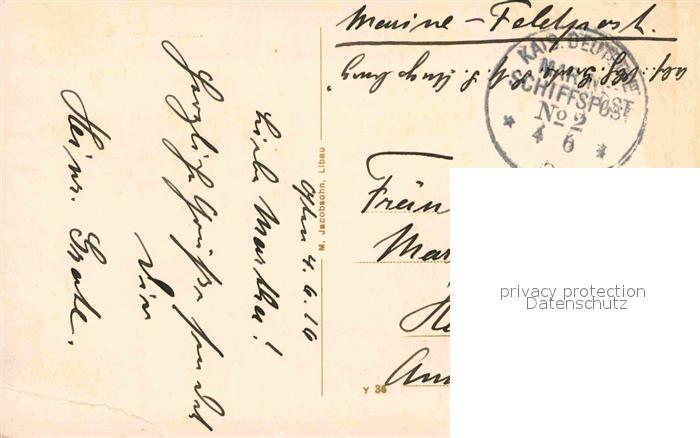 Marine-Feldpost.
KAIS. DEUTSCHE
MARINE
SCHIFFSPOST
No 2
* 4 6 *
Fräu
Mar
He
An
Y 36
M. Jacobsohn, Libau
4.6.16
Liebe Martha!
Herzliche Grüße sendet
Dein
Heinr.
privacy protection
Datenschutz